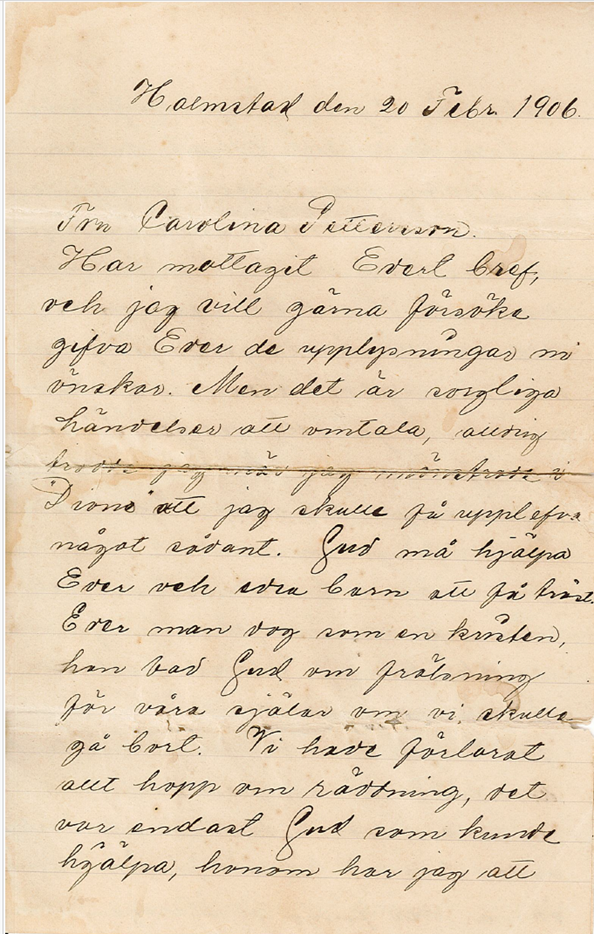 Halmstad den 20 Febr. 1906.
Fru Carolina Pettersson.
Har mottagit Edert bref,
och jag vill gärna försöka
gifva Eder de upplysningar ni
önskar. Men det är sorgliga
händelser att omtala, aldrig
trodde jag när jag mönstrade i
"Dione" att jag skulle få upplefva
något sådant. Gud må hjälpa
Eder och edra barn att få tröst.
Eder man dog som en kristen,
han bad Gud om frälsning
för våra själar om vi skulle
gå bort. Vi hade förlorat
allt hopp om räddning, det
var endast Gud som kunde
hjälpa, honom har jag att